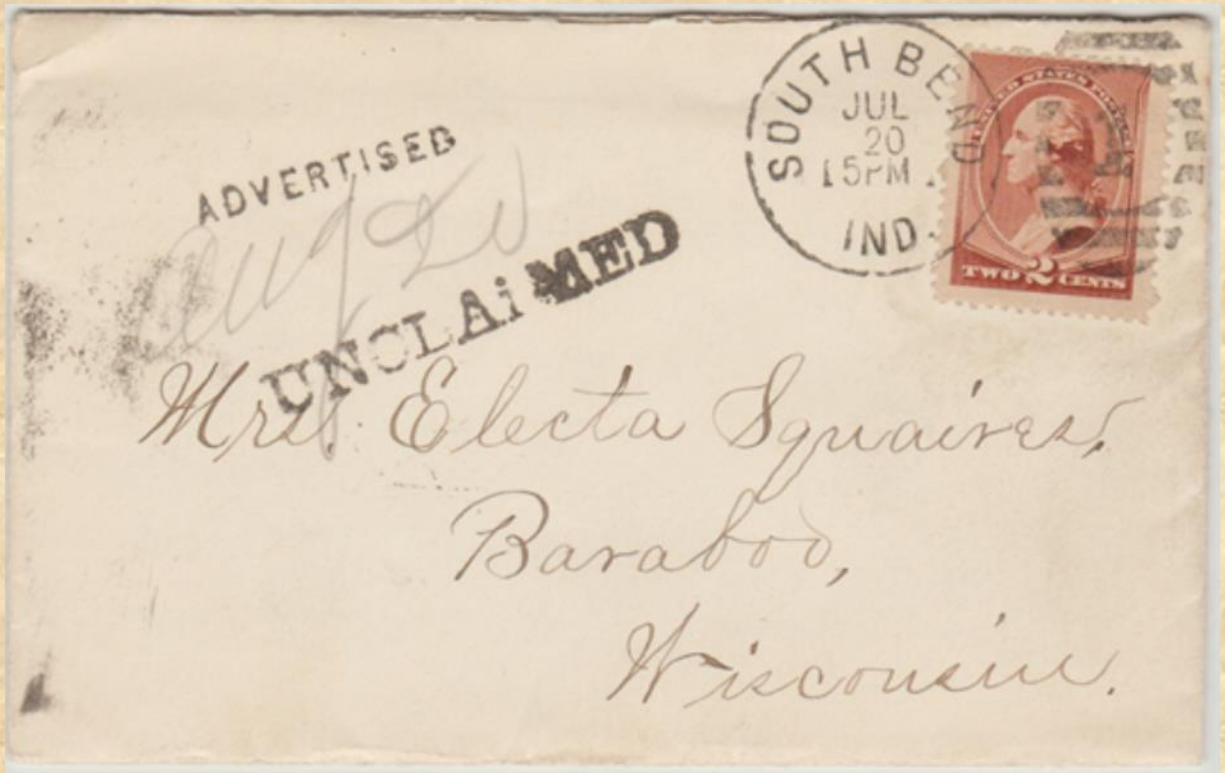 SOUTH BEND
JUL
20
5PM
IND.
UNITED STATES POSTAGE
TWO 2 CENTS
ADVERTISED
Aug
UNCLAiMED
Mrs. Electa Squaires,
Baraboo,
Wisconsin.